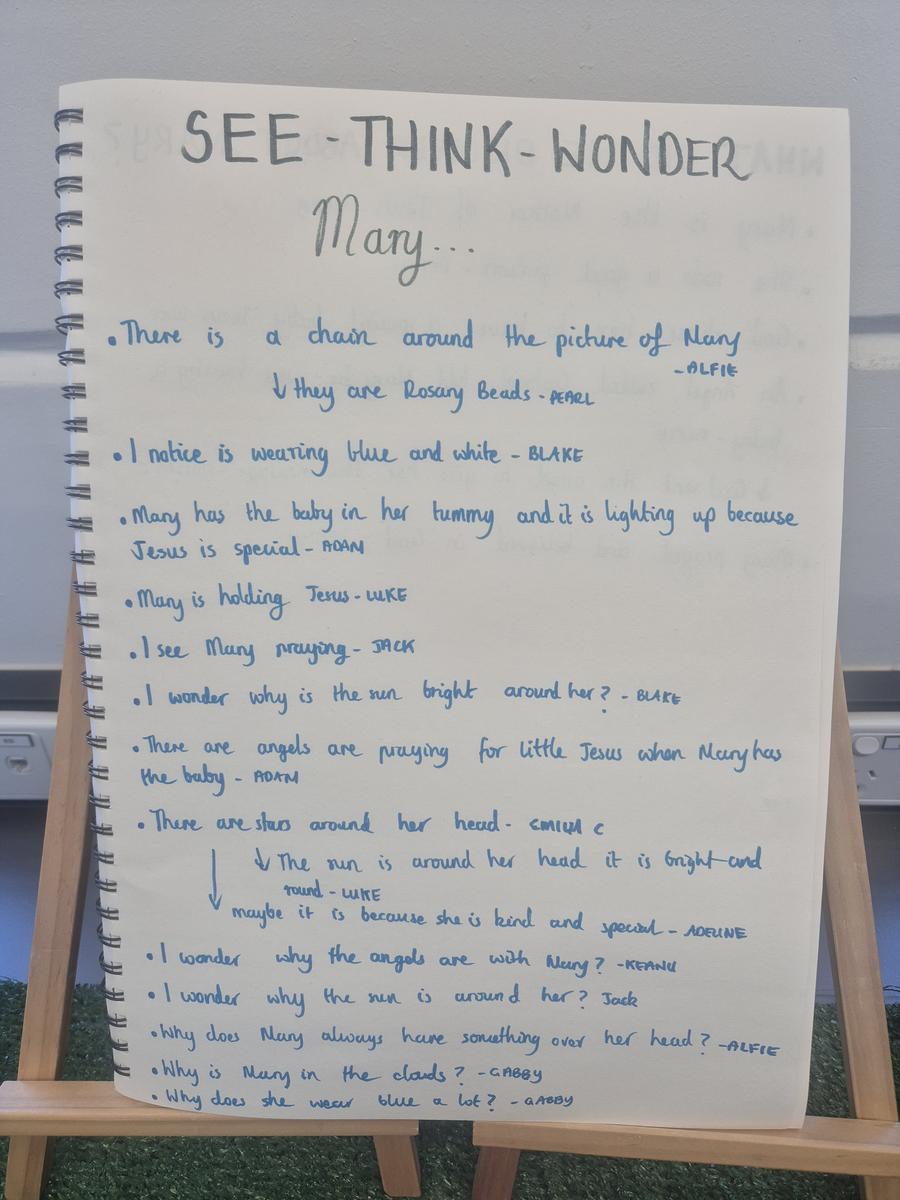 SEE - THINK - WONDER
Mary...
• There is a chain around the picture of Mary
- ALFIE
↓ they are Rosary Beads - PEARL
• I notice is wearing blue and white - BLAKE
• Mary has the baby in her tummy and it is lighting up because
Jesus is special - ADAM
• Mary is holding Jesus - LUKE
• I see Mary praying - JACK
• I wonder why is the sun bright around her? - BLAKE
• There are angels are praying for little Jesus when Mary has
the baby - ADAM
• There are stars around her head - EMILIA C
↓ The sun is around her head it is bright and
round - LUKE
↓ maybe it is because she is kind and special - ADELINE
• I wonder why the angels are with Mary? - KEANU
• I wonder why the sun is around her? Jack
• Why does Mary always have something over her head? - ALFIE
• Why is Mary in the clouds? - GABBY
• Why does she wear blue a lot? - GABBY